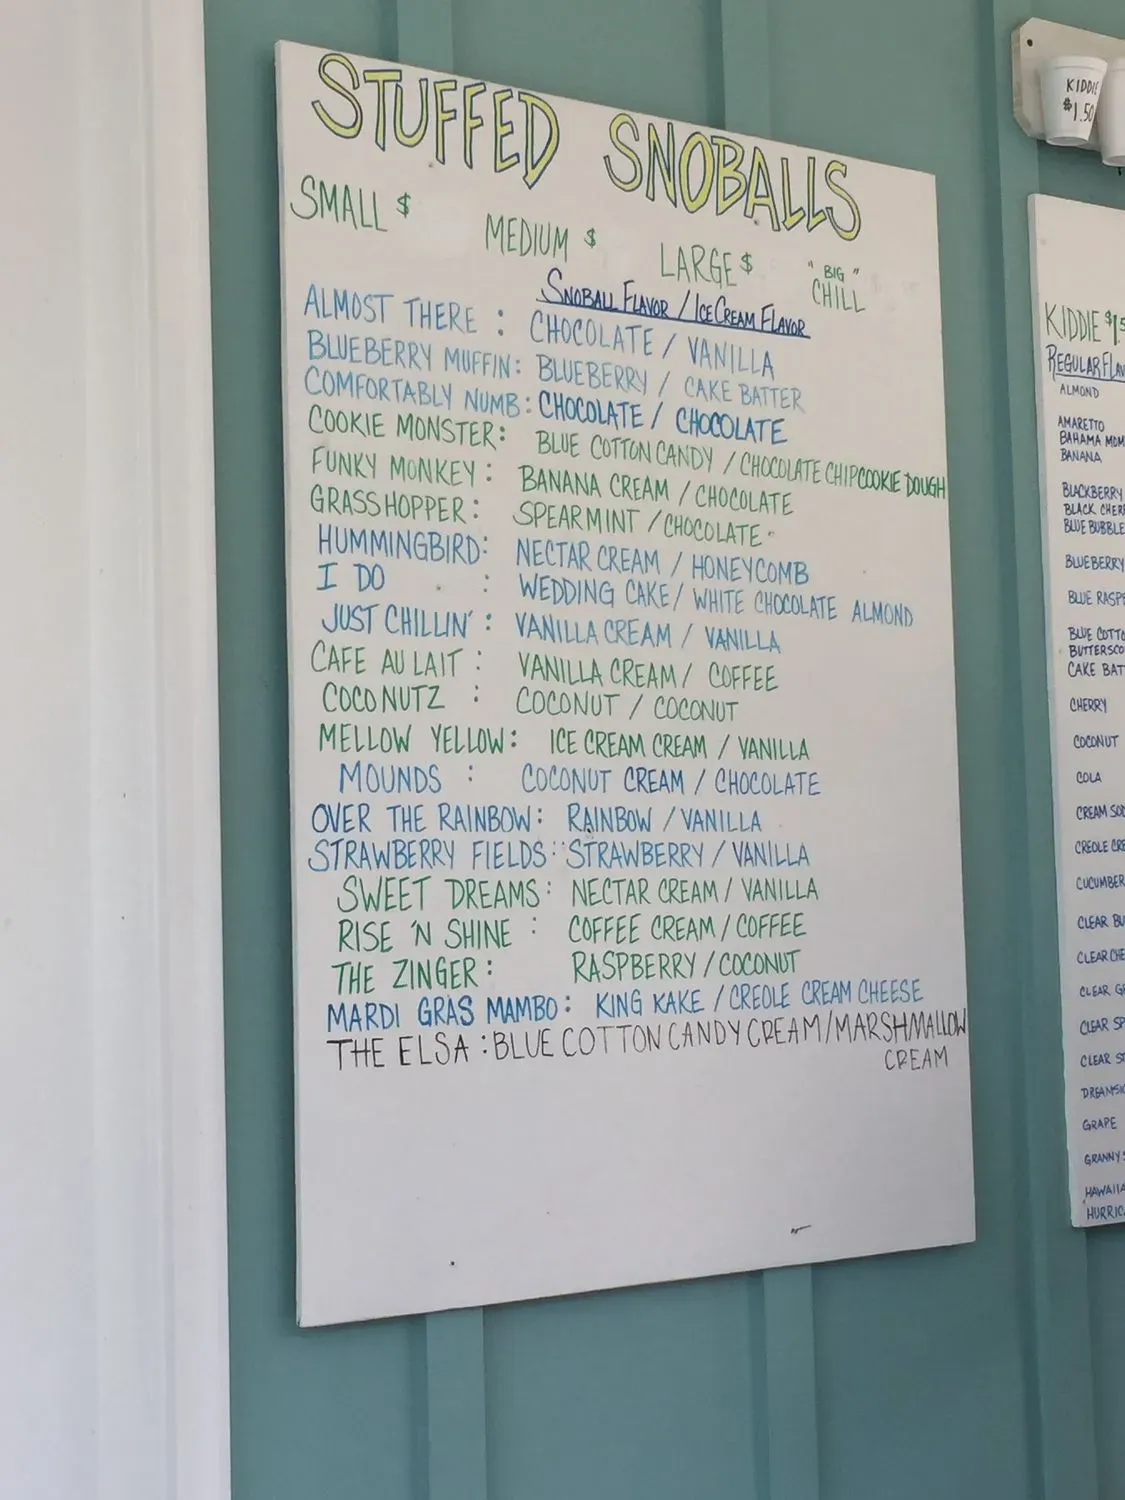 STUFFED SNOBALLS
SMALL $ MEDIUM $ LARGE $ "BIG" CHILL
SNOBALL FLAVOR / ICE CREAM FLAVOR
ALMOST THERE : CHOCOLATE / VANILLA
BLUEBERRY MUFFIN: BLUEBERRY / CAKE BATTER
COMFORTABLY NUMB: CHOCOLATE / CHOCOLATE
COOKIE MONSTER: BLUE COTTON CANDY / CHOCOLATE CHIP COOKIE DOUGH
FUNKY MONKEY: BANANA CREAM / CHOCOLATE
GRASSHOPPER: SPEARMINT / CHOCOLATE
HUMMINGBIRD: NECTAR CREAM / HONEYCOMB
I DO : WEDDING CAKE / WHITE CHOCOLATE ALMOND
JUST CHILLIN' : VANILLA CREAM / VANILLA
CAFE AU LAIT : VANILLA CREAM / COFFEE
COCONUTZ : COCONUT / COCONUT
MELLOW YELLOW: ICE CREAM CREAM / VANILLA
MOUNDS : COCONUT CREAM / CHOCOLATE
OVER THE RAINBOW: RAINBOW / VANILLA
STRAWBERRY FIELDS: STRAWBERRY / VANILLA
SWEET DREAMS: NECTAR CREAM / VANILLA
RISE 'N SHINE : COFFEE CREAM / COFFEE
THE ZINGER: RASPBERRY / COCONUT
MARDI GRAS MAMBO: KING KAKE / CREOLE CREAM CHEESE
THE ELSA : BLUE COTTON CANDY CREAM / MARSHMALLOW
CREAM
KIDDIE
$1.50
KIDDIE
ALMOND
AMARETTO
BAHAMA
BANANA
BLACKBERRY
BLACK
BLUE
BLUEBERRY
BLUE
BLUE
CAKE
CHERRY
COCONUT
COLA
CREAM
CUCUMBER
CLEAR
CLEAR
CLEAR
CLEAR
CLEAR
GRAPE
GRANNY